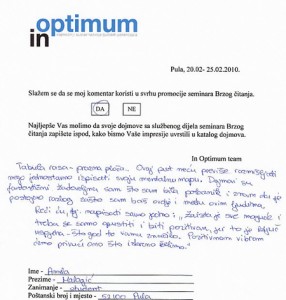 in optimum
Pula, 20.02- 25.02.2010.
Slažem se da se moj komentar koristi u svrhu promocije seminara Brzog čitanja.
DA NE
Najljepše Vas molimo da svoje dojmove sa službenog dijela seminara Brzog
čitanja zapišete ispod, kako bismo Vaše impresije uvrstili u katalog dojmova.
In Optimum team
Tabula rasa - prazna ploča... Ovaj put neću previše razmišljati
nego jednostavno ispisati svoju mentalnu mapu. Dojmovi su
fantastični. Zadovoljna sam što sam bila
postoji razlog zašto sam baš ovdje i među ovim ljudima.
napisati samo jedno: "Zaista je sve moguće i
treba se samo opustiti i biti pozitivan, jer to je ključ
uspjeha
ćemo privući ono što iskreno želimo."
Ime -
Prezime -
Zanimanje - student
Poštanski broj i mjesto - 52100 Pula